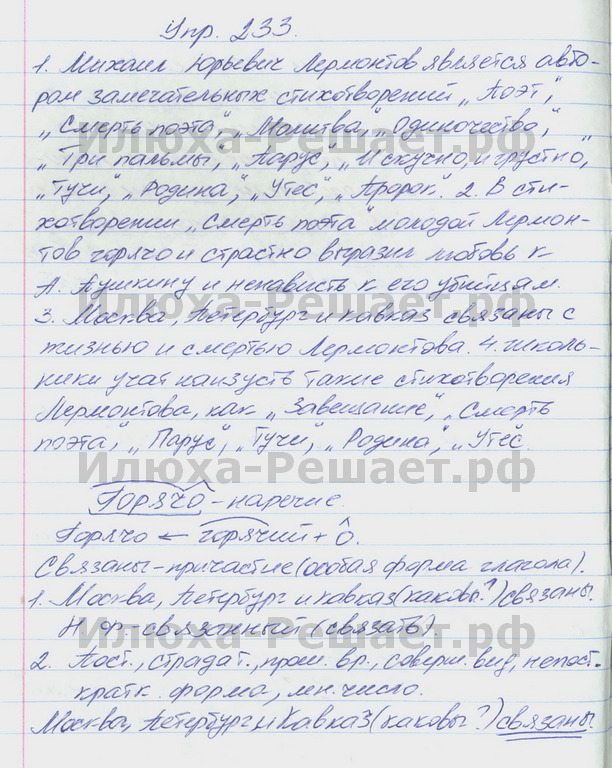 Упр. 233.
1. Михаил Юрьевич Лермонтов является авто-
ром замечательных стихотворений „Поэт”,
„Смерть поэта”, „Молитва”, „Одиночество”,
Илюха-Решает.рф
„Три пальмы”, „Парус”, „И скучно, и грустно”,
„Тучи”, „Родина”, „Утёс”, „Пророк”. 2. В сти-
хотворении „Смерть поэта” молодой Лермон-
тов горячо и страстно выразил любовь к
А. Пушкину и ненависть к его убийцам.
Илюха-Решает.рф
3. Москва, Петербург и Кавказ связаны с
жизнью и смертью Лермонтова. 4. Школь-
ники учат наизусть такие стихотворения
Лермонтова, как „Завещание”, „Смерть
поэта”, „Парус”, „Тучи”, „Родина”, „Утёс”.
Илюха-Решает.рф
Горячо - наречие.
Горячо ← горячий + о.
Связаны - причастие (особая форма глагола).
1. Москва, Петербург и Кавказ (каковы?) связаны.
Н.ф. - связанный (связать).
Илюха-Решает.рф
2. Пост., страдат., прош. вр., соверш. вид, непост. -
кратк. форма, мн. число.
Москва, Петербург и Кавказ (каковы?) связаны.